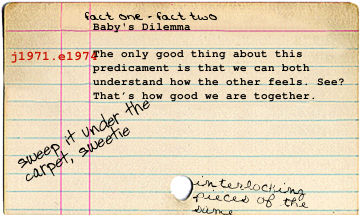 fact one - fact two
Baby's Dilemma
j1971.e1974
The only good thing about this
predicament is that we can both
understand how the other feels. See?
That's how good we are together.
sweep it under the
carpet, sweetie
interlocking
pieces of the
same